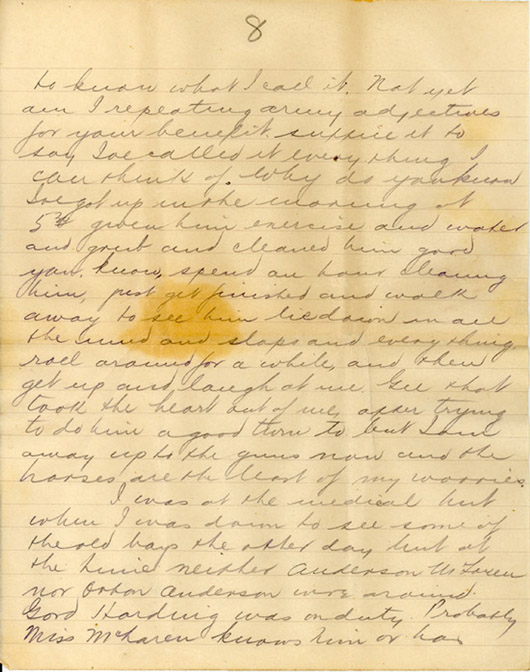 8
to know what I call it. Not yet
am I repeating army adjectives
for your benefit. suffice it to
say I've called it everything I
can think of. Why do you know
I've got up in the morning at
5 given him exercise and water
and grub and cleaned him good
you, know, spend an hour cleaning
him, just get finished and walk
away to see him lie down in all
the mud and slops and everything,
roll around for a while, and then
get up and laugh at me. Gee that
took the heart out of me, after trying
to do him a good turn to but I am
away up to the guns now and the
horses are the least of my worries.
I was at the medical hut
when I was down to see some of
the old boys the other day but at
the time neither Anderson McLaren
nor Orton Anderson were around.
Gord Harding was on duty. Probably
Miss McLaren knows him or has